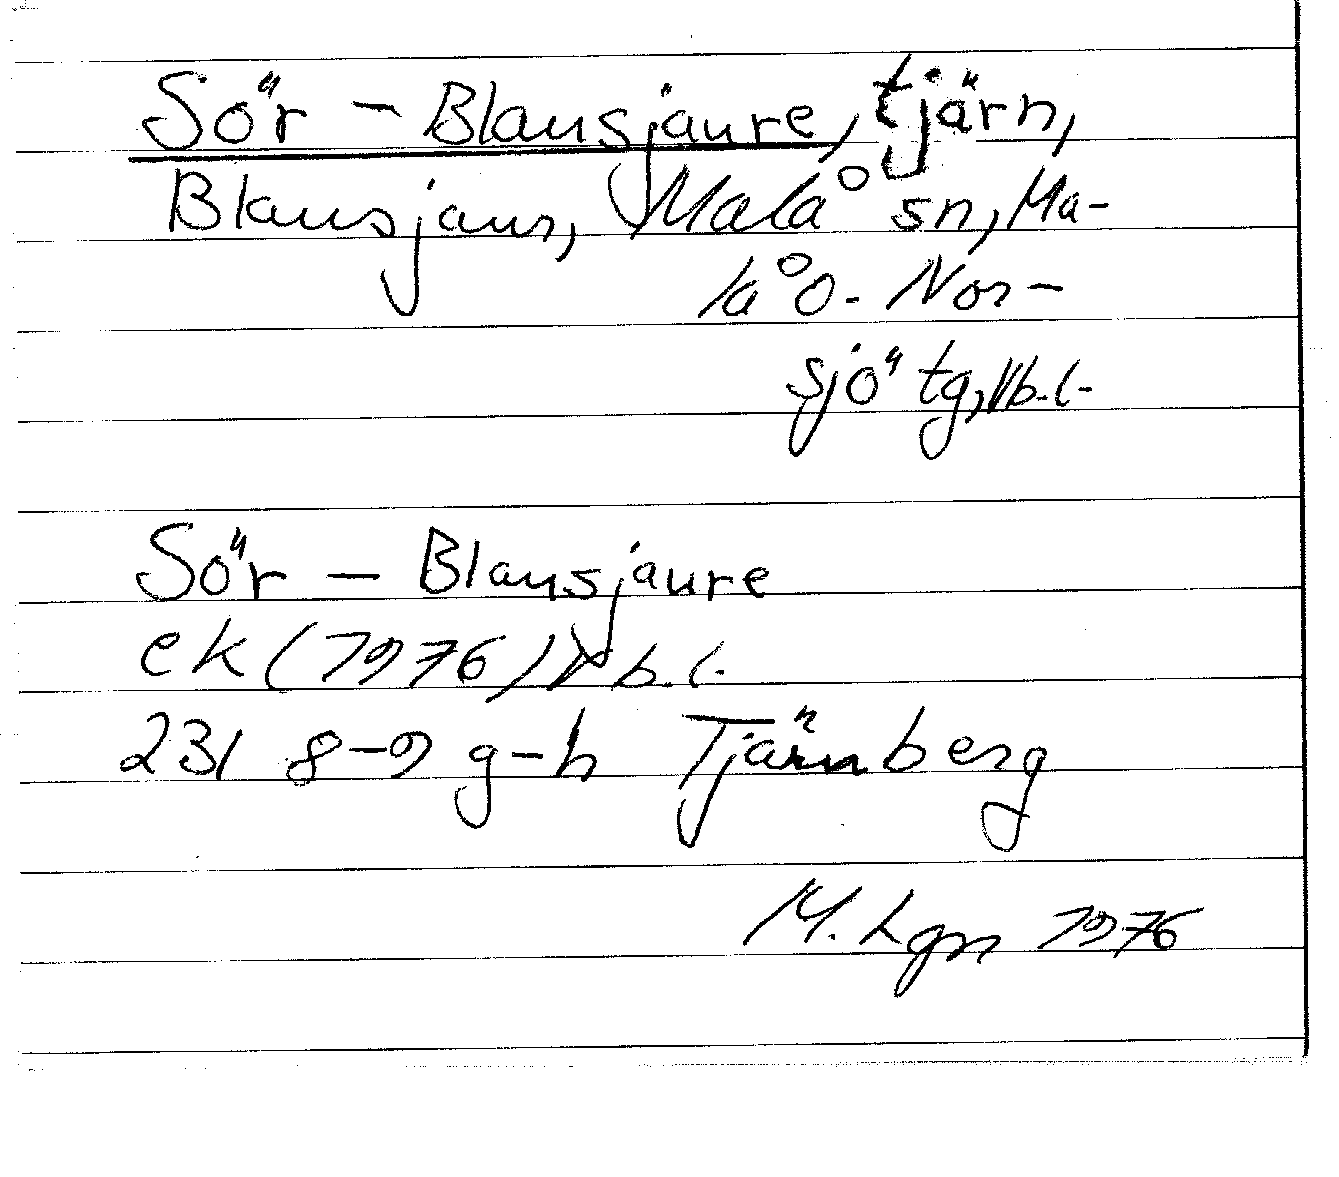 Sör - Blausjaure, tjärn,
Blausjaur, Malå sn, Ma-
lå o. Nor-
sjö tg, Vb.l.
Sör - Blausjaure
ek (1976) Vb.l.
23I 8-9 g-h Tjärnberg
M. Lgn 1976